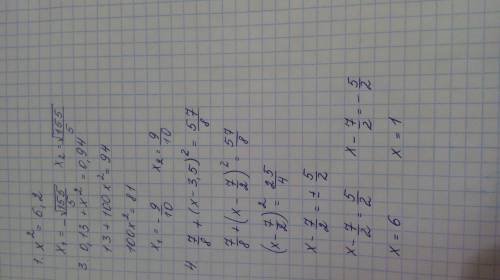 1. x² = 6,2
x₁ = -√155/5   x₂ = √155/5
3. 0,13 + x² = 0,94
13 + 100x² = 94
100x² = 81
x₁ = -9/10   x₂ = 9/10
4. 7/8 + (x - 3,5)² = 57/8
7/8 + (x - 7/2)² = 57/8
(x - 7/2)² = 25/4
x - 7/2 = ± 5/2
x - 7/2 = 5/2   x - 7/2 = -5/2
x = 6   x = 1